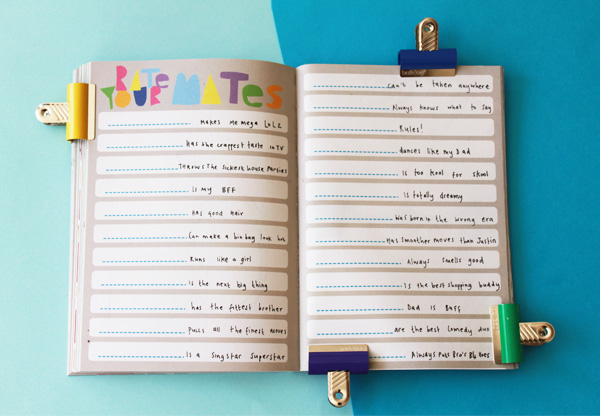 RATE
YOUR MATES
makes me mega LOLZ
Has the crappest taste in TV
Throws the sickest house parties
is my BFF
Has good hair
Can make a bin bag look hot
Runs like a girl
is the next big thing
has the fittest brother
pulls all the finest moves
is a singstar superstar
can't be taken anywhere
Always knows what to say
Rules!
dances like my Dad
is too kool for skool
is totally dreamy
Was born in the wrong era
Has smoother moves than Justin
Always smells good
is the best shopping buddy
Dad is Buff
are the best comedy duo
Always puts Bro's B4 Hoes